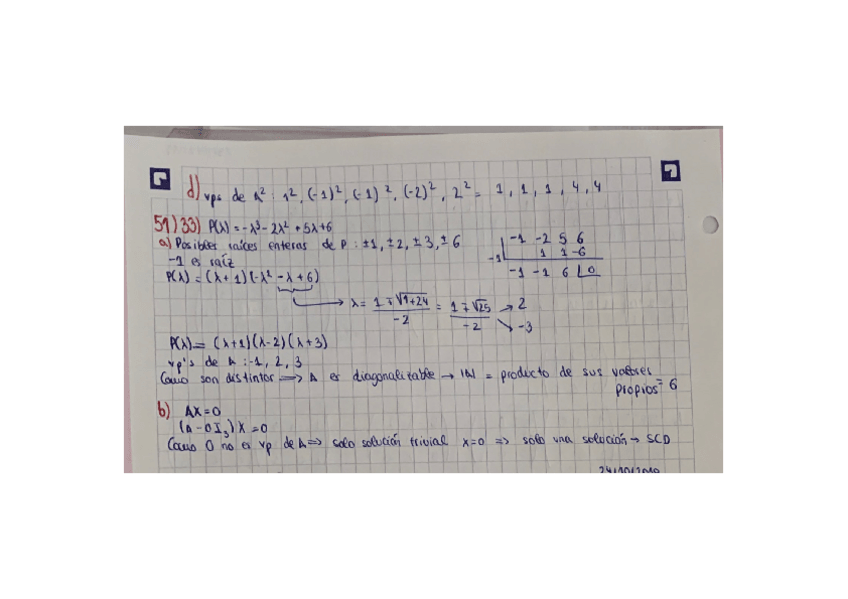 d) vps de A² : 1², (-1)², (-1)², (-2)², 2² = 1, 1, 1, 4, 4
51) 33) P(λ) = -λ³ - 2λ² + 5λ + 6
a) Posibles raíces enteras de P : ±1, ±2, ±3, ±6
-1 es raíz
P(λ) = (λ + 1)(-λ² - λ + 6)
-1 -2 5 6
-1 1 1 -6
-1 -1 6 0
λ = 1 ∓ √1+24 / -2 = 1 ∓ √25 / -2 → 2
↘ -3
P(λ) = (λ+1)(λ-2)(λ+3)
vp's de A : -1, 2, 3
Como son distintos ⟹ A es diagonalizable → |A| = producto de sus valores
propios = 6
b) AX = 0
(A - 0I₃) X = 0
Como 0 no es vp de A ⟹ solo solución trivial x=0 ⟹ solo una solución → SCD
24/10/2019